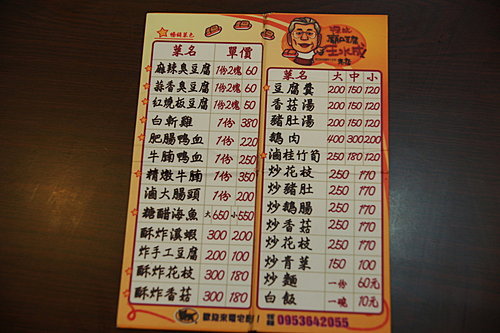 招牌菜色
菜名 單價
麻辣臭豆腐 1份2塊 60
蒜香臭豆腐 1份2塊 60
紅燒板豆腐 1份2塊 50
白斬雞 1份 380
肥腸鴨血 1份 220
牛腩鴨血 1份 250
精燉牛腩 1份 350
滷大腸頭 1份 200
糖醋海魚 大650 小550
酥炸溪蝦 300 200
炸手工豆腐 200 100
酥炸花枝 300 180
酥炸香菇 300 180
歡迎來電宅配!
深坑
廟口豆腐
王水成
老店
菜名 大 中 小
豆腐羹 200 150 120
香菇湯 200 150 120
豬肚湯 200 150 120
鵝肉 400 300 200
滷桂竹筍 250 180 120
炒花枝 250 170
炒豬肚 250 170
炒鵝腸 250 170
炒香菇 250 170
炒花枝 250 170
炒青菜 150 100
炒麵 一份 60元
白飯 一碗 10元
0953642055